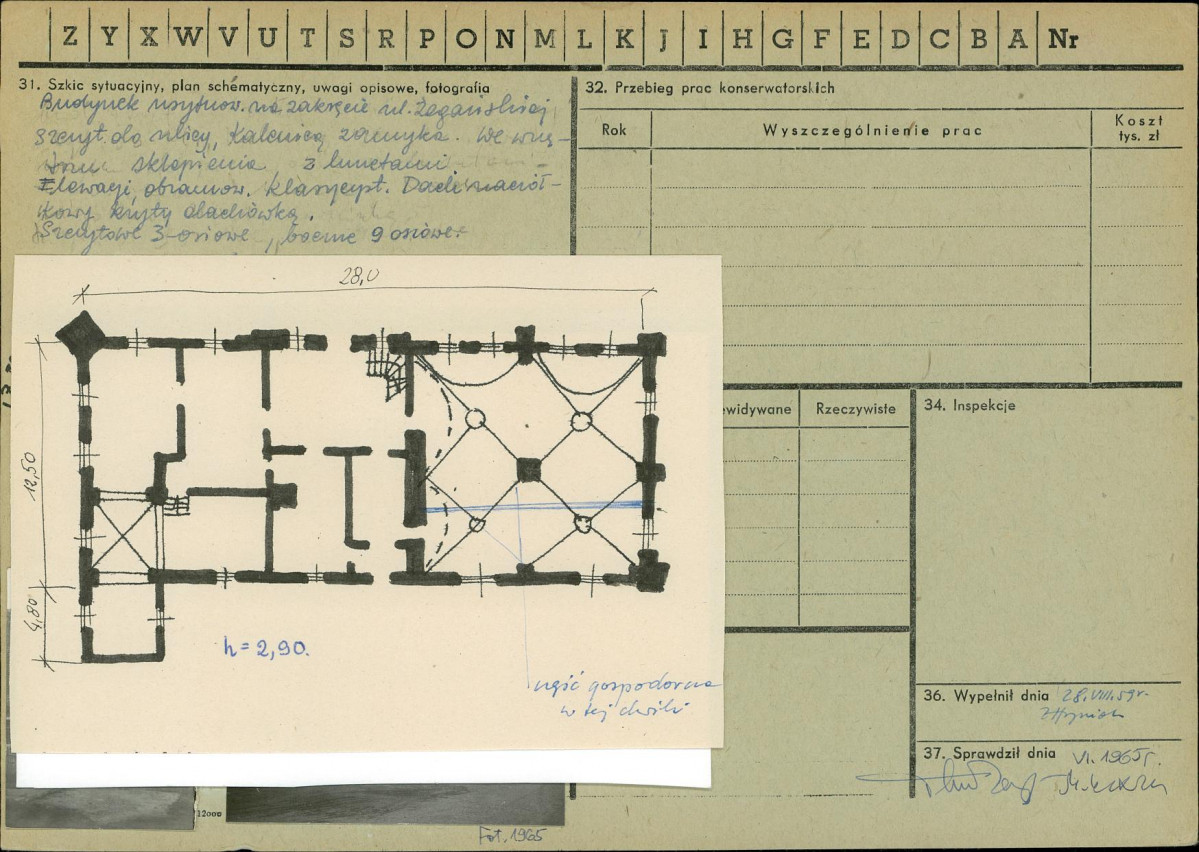 Z Y X W V U T S R P O N M L K J I H G F E D C B A Nr
31. Szkic sytuacyjny, plan schématyczny, uwagi opisowe, fotografia
Budynek usytuow. na zakręcie ul. Żagańskiej
szczyt. do ulicy, Kalenicą zamyka. We wnę-
trzu sklepienia z lunetami
Elewacji obramow. klasycyst. Dach naciół-
kowy kryty dachówką.
Szczytowe 3-osiowe, boczne 9 osiowe.
32. Przebieg prac konserwatorskich
Rok
Wyszczególnienie prac
Koszt
tys. zł
28,0
12,50
4,80
h = 2,90.
część gospodarcza
w tej chwili
ewidywane
Rzeczywiste
34. Inspekcje
36. Wypełnił dnia 28.VIII.59r.
37. Sprawdził dnia VI. 1965r.
12000
Fot. 1965